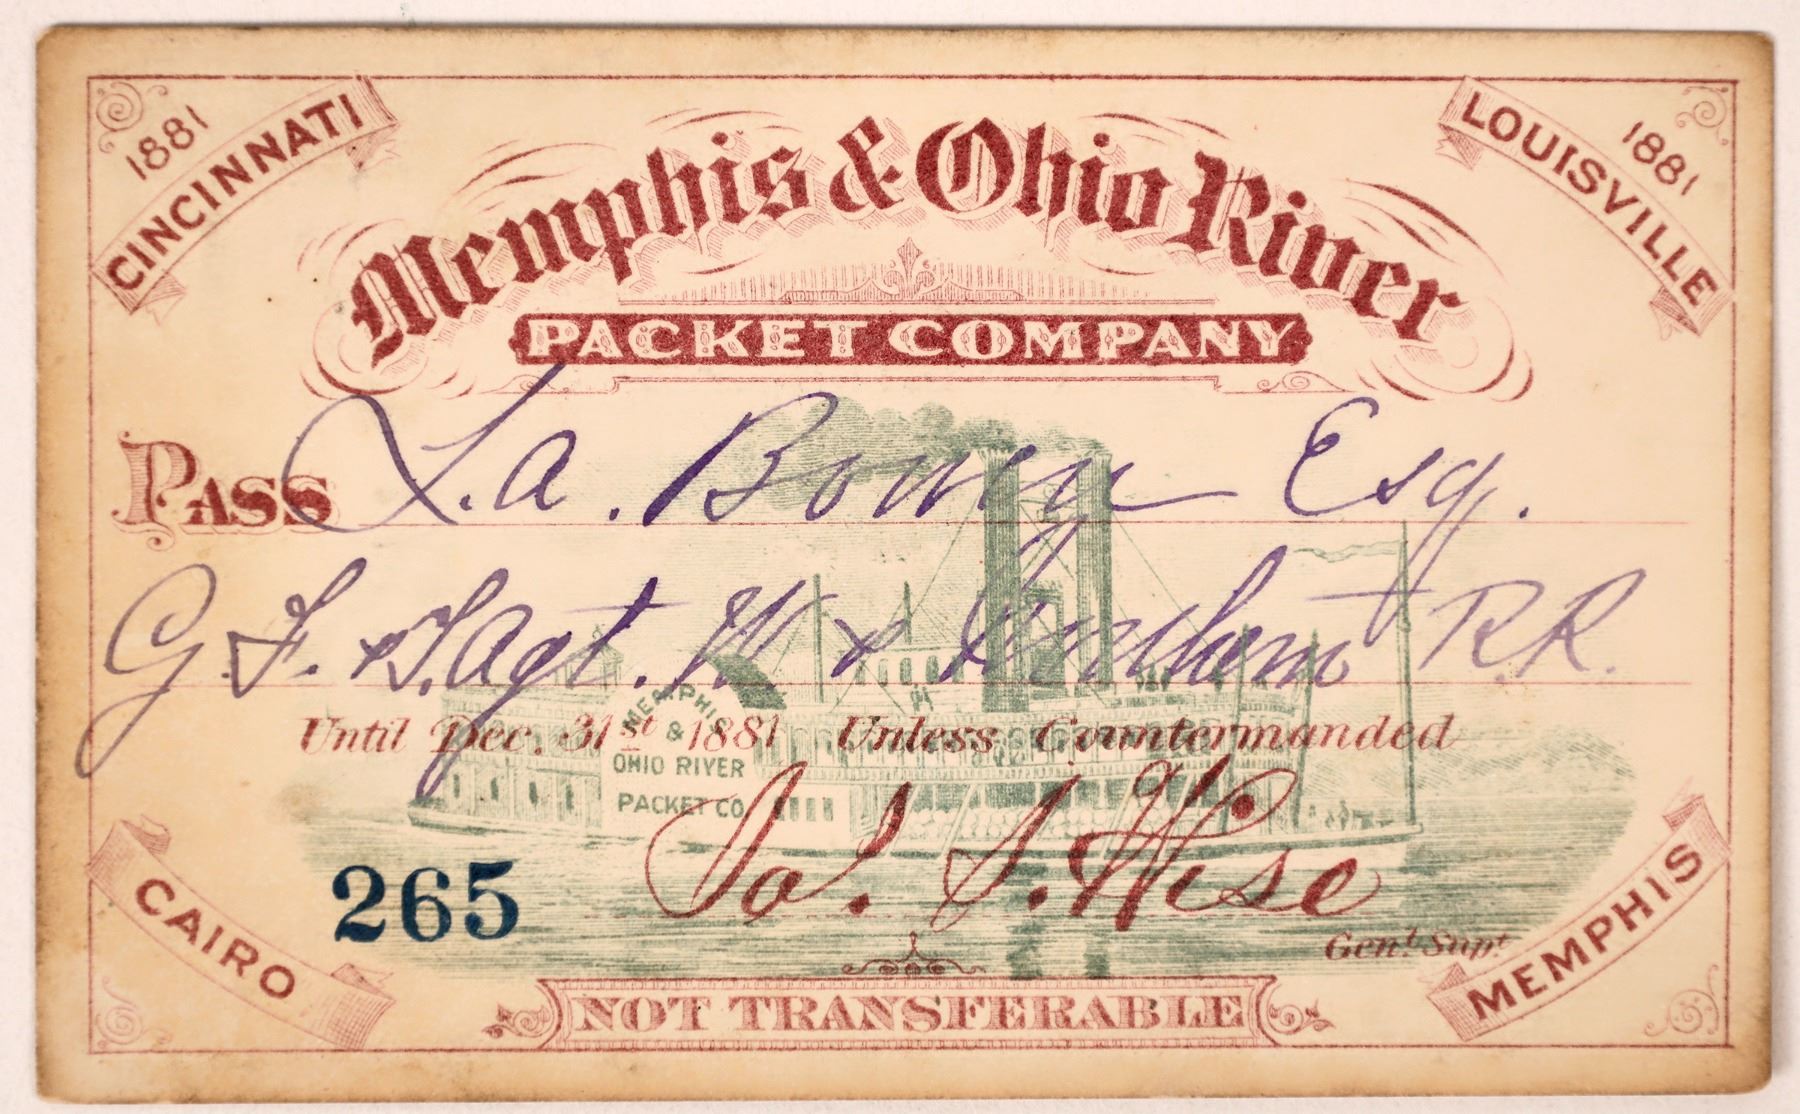 1881
CINCINNATI
1881
LOUISVILLE
Memphis & Ohio River
PACKET COMPANY
PASS L.A. Bowen Esq.
G.F. & T. Agt. W & R.R.
Until Dec. 31st 1881 Unless Countermanded
MEMPHIS
&
OHIO RIVER
PACKET CO
265
Jas. S. Wise
Genl. Supt.
CAIRO
MEMPHIS
NOT TRANSFERABLE